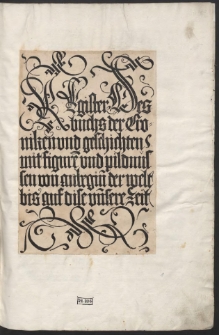 Register Des
buchs der Cro
niken und geschichten
mit figurẽ und pildnus
sen von anbegin der welt
bis auf dise unsere Zeit